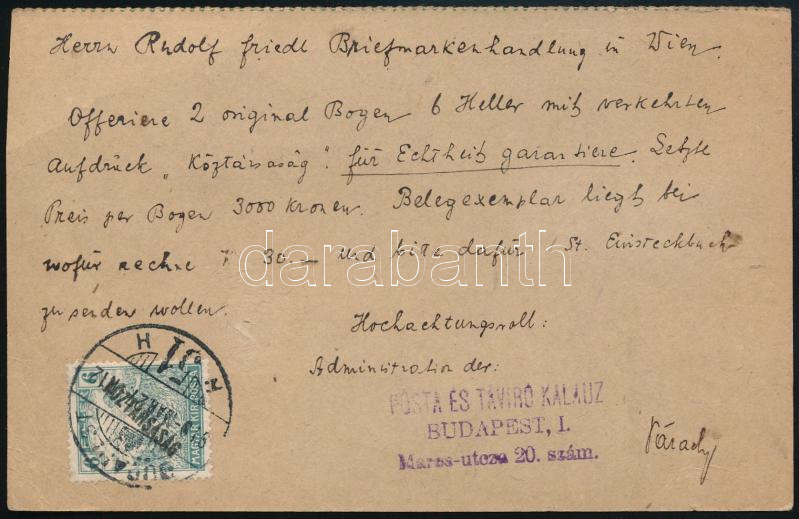 Herrn Rudolf Friedl Briefmarkenhandlung in Wien.
Offeriere 2 original Bogen 6 Heller mit verkehrten
Aufdrück „Köztársaság". für Echtheit garantiere. Letzte
Preis per Bogen 3000 Kronen. Belegexemplar liegt bei
wofür rechne 30.— und bite dafür 1 St. Einsteckbuch
zu senden wollen.
Hochachtungsvoll:
Administration der:
POSTA ÉS TÁVIRÓ KALAUZ
BUDAPEST, I.
Maros-utcza 20. szám.
Várady
darabanth
KÖZTÁRSASÁG
6